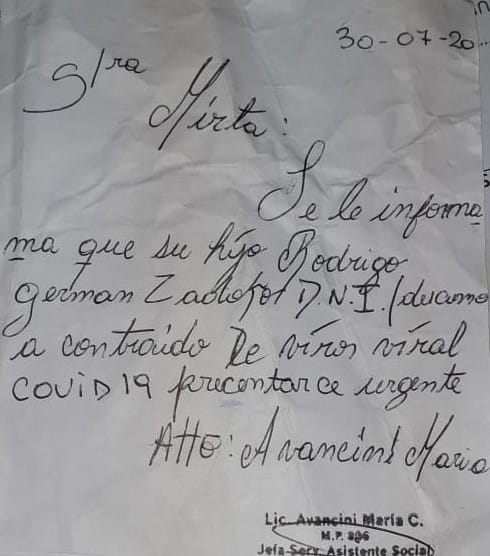 30-07-20..
S/ra
Mirta:
Se le informa
ma que su hijo Rodrigo
german Zadofor D.N.I. (ducamo
a contraido De viros viral
COVID19 precentarce urgente
Atte: Avancini Maria
Lic. Avancini María C.
M.P. 896
Jefa Serv. Asistente Social